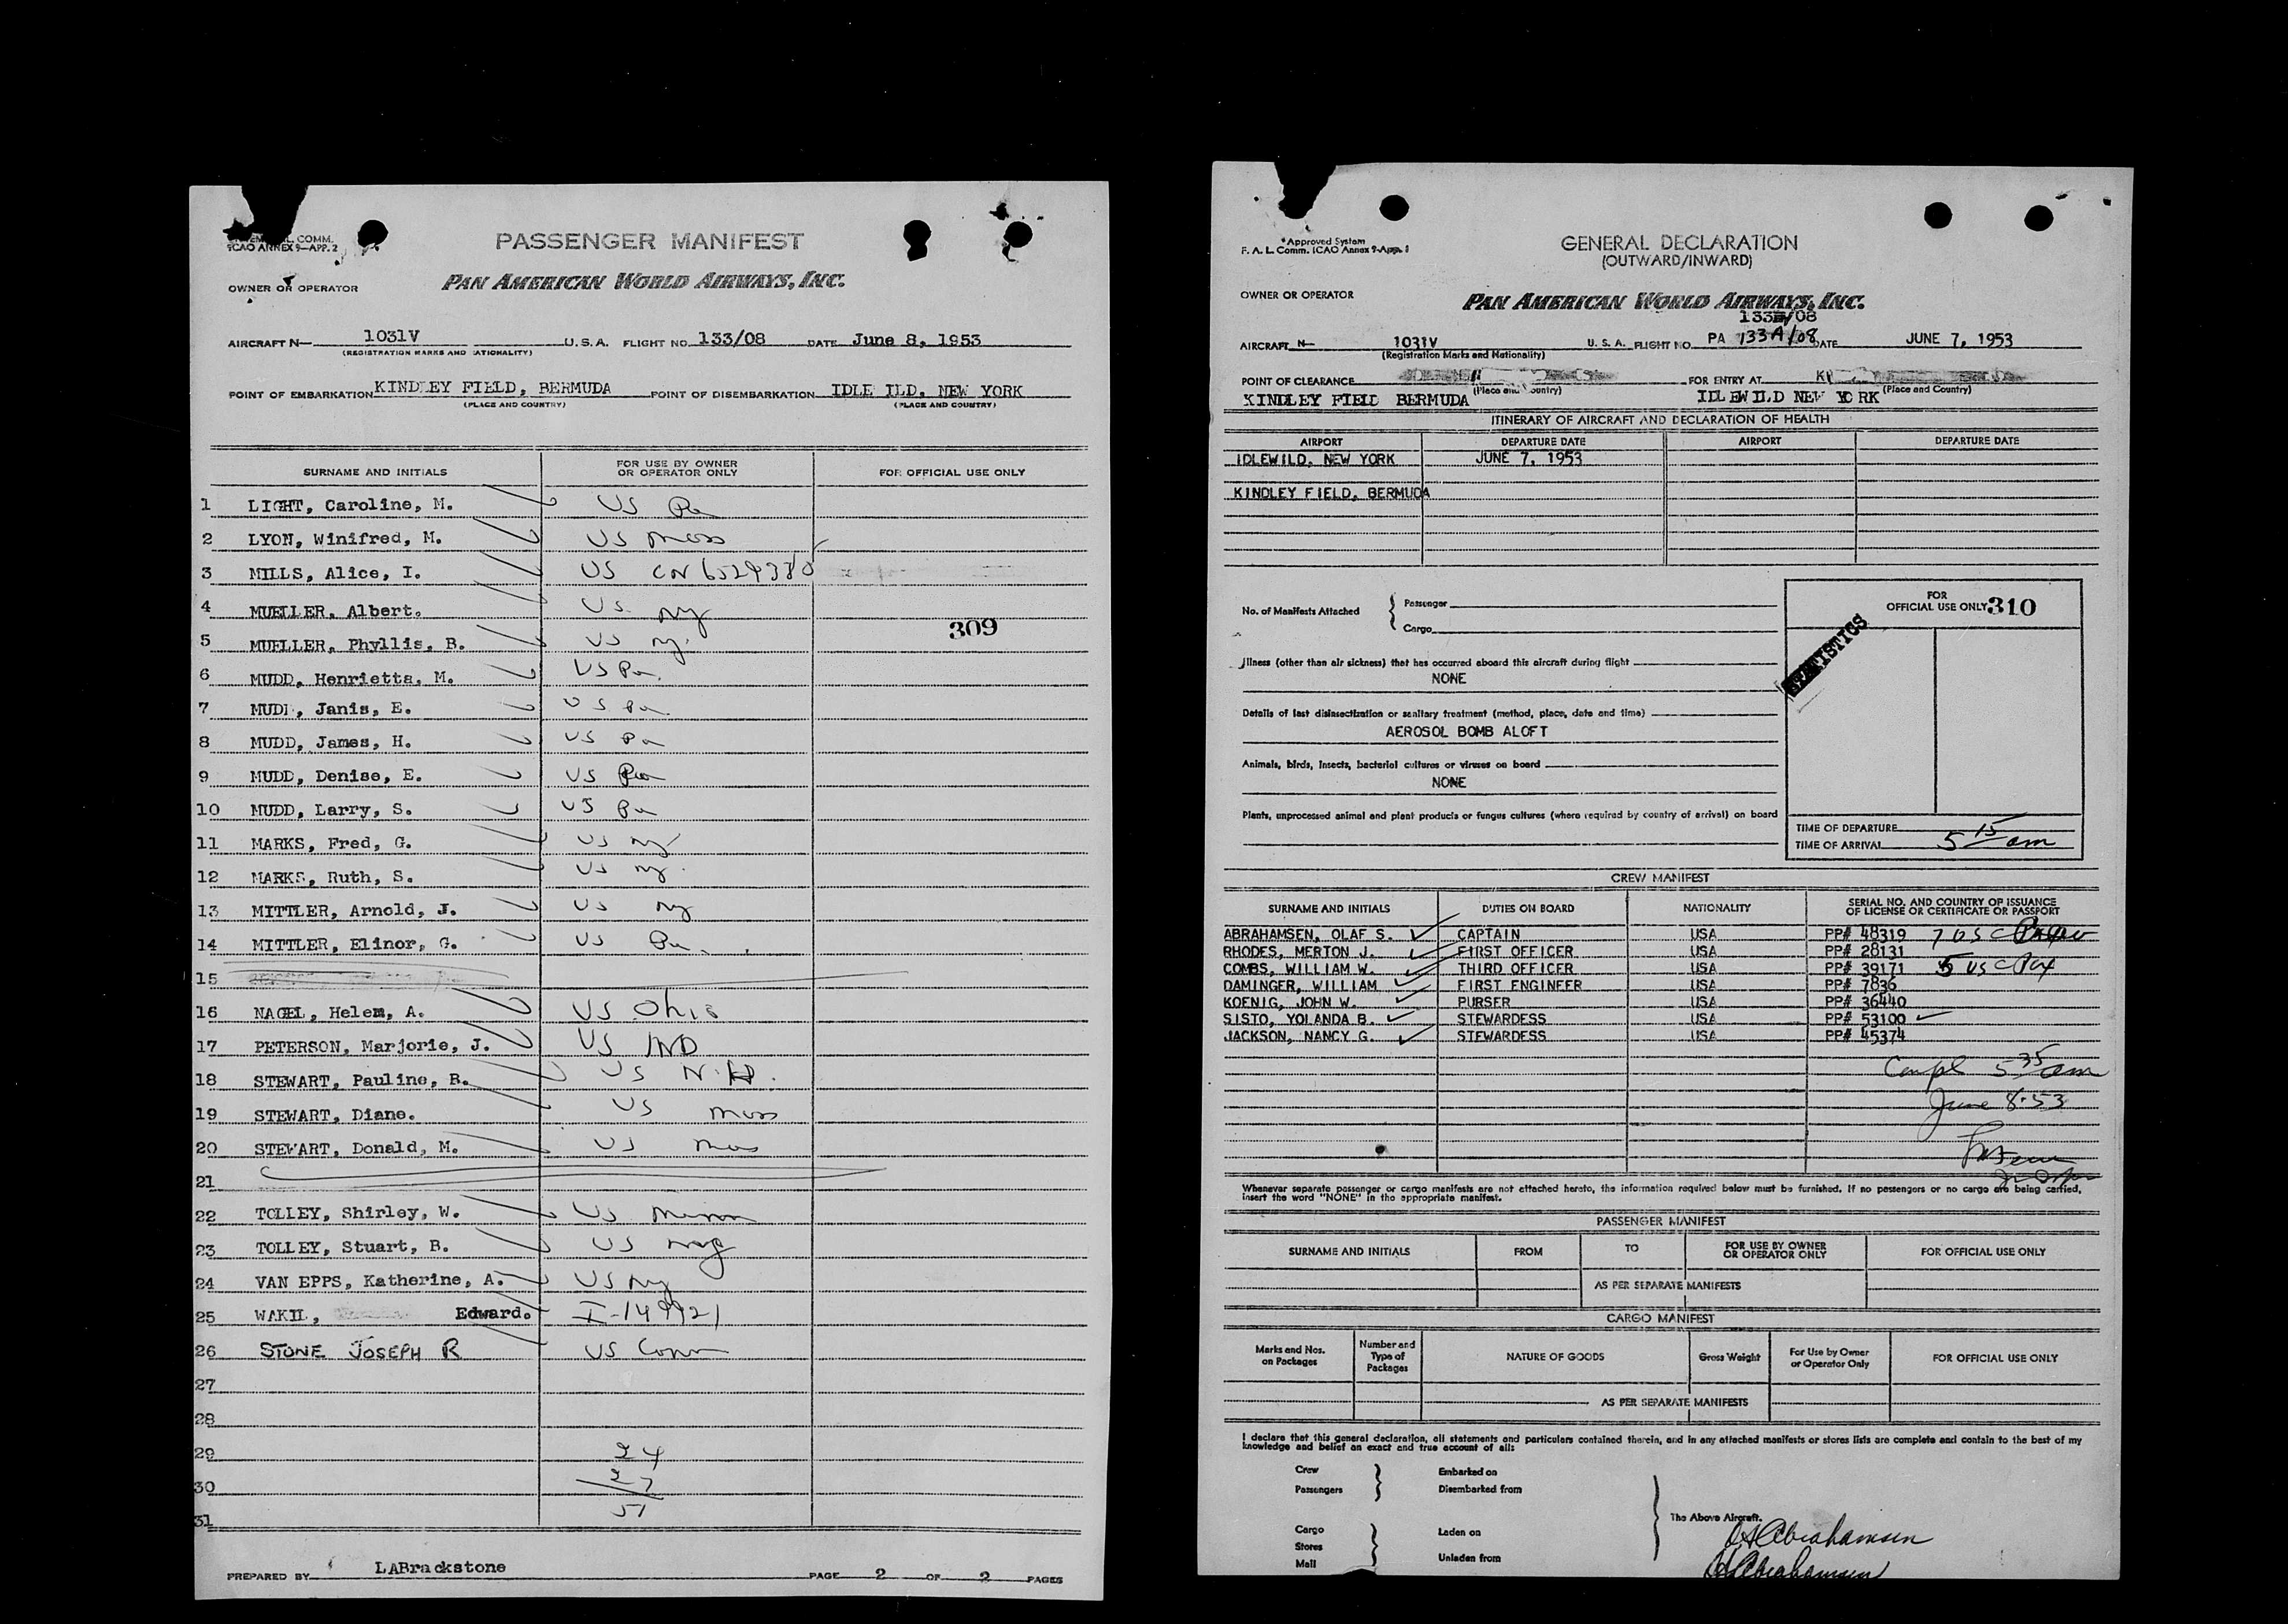 ICAO ANNEX 9—APP. 2
PASSENGER MANIFEST
OWNER OR OPERATOR
PAN AMERICAN WORLD AIRWAYS, INC.
AIRCRAFT N— 1031V U.S.A. FLIGHT NO. 133/08 DATE June 8, 1953
(REGISTRATION MARKS AND NATIONALITY)
POINT OF EMBARKATION KINDLEY FIELD, BERMUDA POINT OF DISEMBARKATION IDLE ILD, NEW YORK
(PLACE AND COUNTRY) (PLACE AND COUNTRY)
SURNAME AND INITIALS FOR USE BY OWNER OR OPERATOR ONLY FOR OFFICIAL USE ONLY
1 LIGHT, Caroline, M. US Pa
2 LYON, Winifred, M. US Mass
3 MILLS, Alice, I. US CN 6529380
4 MUELLER, Albert. US NY
5 MUELLER, Phyllis, B. US NY 309
6 MUDD, Henrietta, M. US Pa
7 MUDD, Janis, E. US Pa
8 MUDD, James, H. US Pa
9 MUDD, Denise, E. US Pa
10 MUDD, Larry, S. US Pa
11 MARKS, Fred, G. US NY
12 MARKS, Ruth, S. US NY
13 MITTLER, Arnold, J. US NY
14 MITTLER, Elinor, G. US Pa
15
16 NAGEL, Helen, A. US Ohio
17 PETERSON, Marjorie, J. US IND
18 STEWART, Pauline, B. US N.H.
19 STEWART, Diane. US Mass
20 STEWART, Donald, M. US Mass
21
22 TOLLEY, Shirley, W. US
23 TOLLEY, Stuart, B. US
24 VAN EPPS, Katherine, A. US NY
25 WAKIL, Edward. I-149921
26 STONE JOSEPH R US Conn
27
28
29 24
30 27
31 51
PREPARED BY LABrackstone PAGE 2 OF 2 PAGES
*Approved System
F. A. L. Comm. ICAO Annex 9-App. 1
GENERAL DECLARATION
(OUTWARD/INWARD)
OWNER OR OPERATOR
PAN AMERICAN WORLD AIRWAYS, INC.
133/08
AIRCRAFT N— 1031V U. S. A. FLIGHT NO. PA 133A/08 DATE JUNE 7, 1953
(Registration Marks and Nationality)
POINT OF CLEARANCE FOR ENTRY AT
(Place and Country) (Place and Country)
KINDLEY FIELD BERMUDA IDLEWILD NEW YORK
ITINERARY OF AIRCRAFT AND DECLARATION OF HEALTH
AIRPORT DEPARTURE DATE AIRPORT DEPARTURE DATE
IDLEWILD, NEW YORK JUNE 7, 1953
KINDLEY FIELD, BERMUDA
No. of Manifests Attached { Passenger
Cargo
FOR OFFICIAL USE ONLY 310
STATISTICS
Illness (other than air sickness) that has occurred aboard this aircraft during flight
NONE
Details of last disinsectization or sanitary treatment (method, place, date and time)
AEROSOL BOMB ALOFT
Animals, birds, insects, bacterial cultures or viruses on board
NONE
Plants, unprocessed animal and plant products or fungus cultures (where required by country of arrival) on board
TIME OF DEPARTURE
TIME OF ARRIVAL 5 15 am
CREW MANIFEST
SURNAME AND INITIALS DUTIES ON BOARD NATIONALITY SERIAL NO. AND COUNTRY OF ISSUANCE OF LICENSE OR CERTIFICATE OR PASSPORT
ABRAHAMSEN, OLAF S. CAPTAIN USA PP# 48319 7 USC
RHODES, MERTON J. FIRST OFFICER USA PP# 28131
COMBS, WILLIAM W. THIRD OFFICER USA PP# 39171 5 USC
DAMINGER, WILLIAM FIRST ENGINEER USA PP# 7836
KOENIG, JOHN W. PURSER USA PP# 36440
SISTO, YOLANDA B. STEWARDESS USA PP# 53100
JACKSON, NANCY G. STEWARDESS USA PP# 45374
Compl 5 35 am
June 8-53
Whenever separate passenger or cargo manifests are not attached hereto, the information required below must be furnished. If no passengers or no cargo are being carried,
insert the word "NONE" in the appropriate manifest.
PASSENGER MANIFEST
SURNAME AND INITIALS FROM TO FOR USE BY OWNER OR OPERATOR ONLY FOR OFFICIAL USE ONLY
AS PER SEPARATE MANIFESTS
CARGO MANIFEST
Marks and Nos. on Packages Number and Type of Packages NATURE OF GOODS Gross Weight For Use by Owner or Operator Only FOR OFFICIAL USE ONLY
AS PER SEPARATE MANIFESTS
I declare that this general declaration, all statements and particulars contained therein, and in any attached manifests or stores lists are complete and contain to the best of my
knowledge and belief an exact and true account of all:
Crew Embarked on
Passengers Disembarked from
The Above Aircraft.
Cargo Laden on
Stores
Mail Unladen from
OS Abrahamsen
OS Abrahamsen